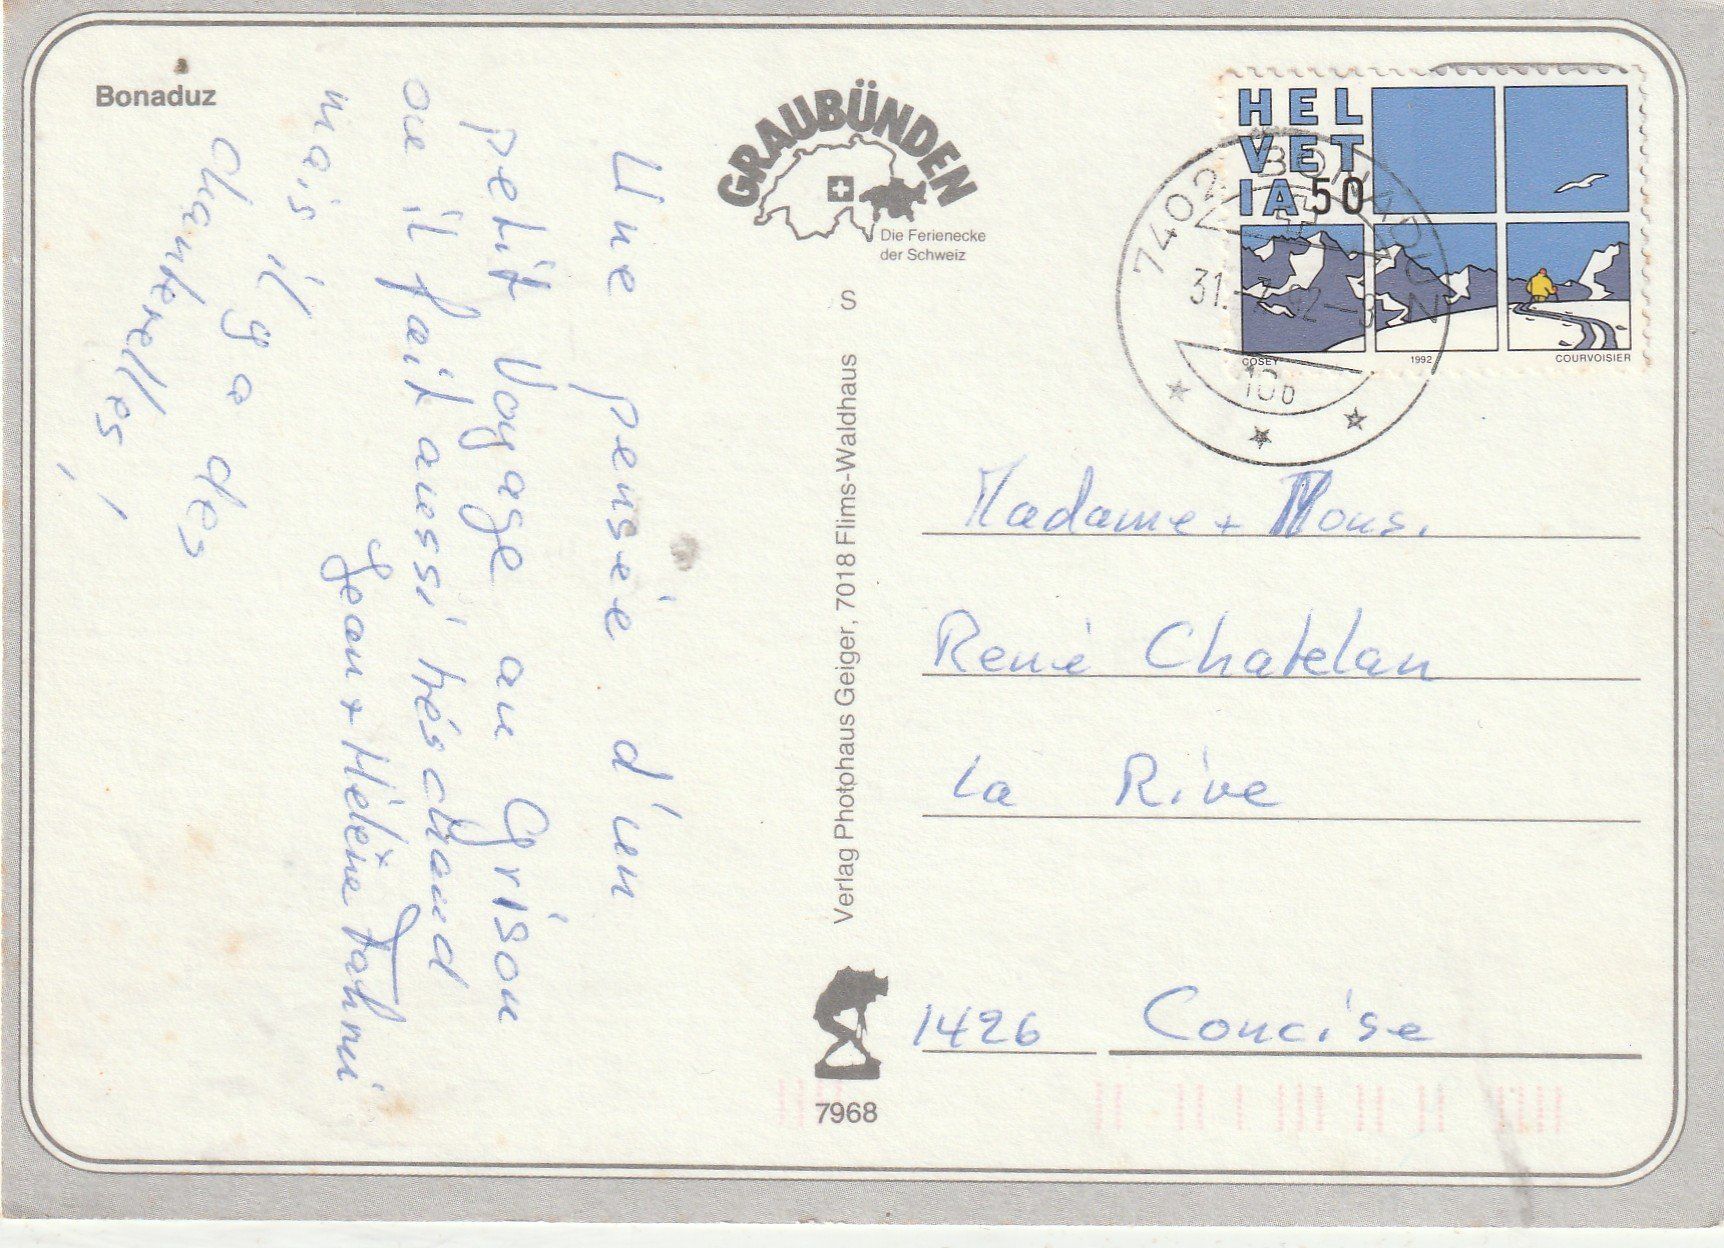 Bonaduz
Une pensée d'un
petit Voyage au Grison
ou il fait aussi très chaud
mais il y a des
chanterelles !
Jean + Hélène Fahrni
GRAUBÜNDEN
Die Ferienecke
der Schweiz
S
Verlag Photohaus Geiger, 7018 Flims-Waldhaus
7968
HEL
VET
IA 50
COSEY 1992 COURVOISIER
7402 BONADUZ
31.-7.92-9
Madame + Mons.
René Chatelan
La Rive
1426 Concise